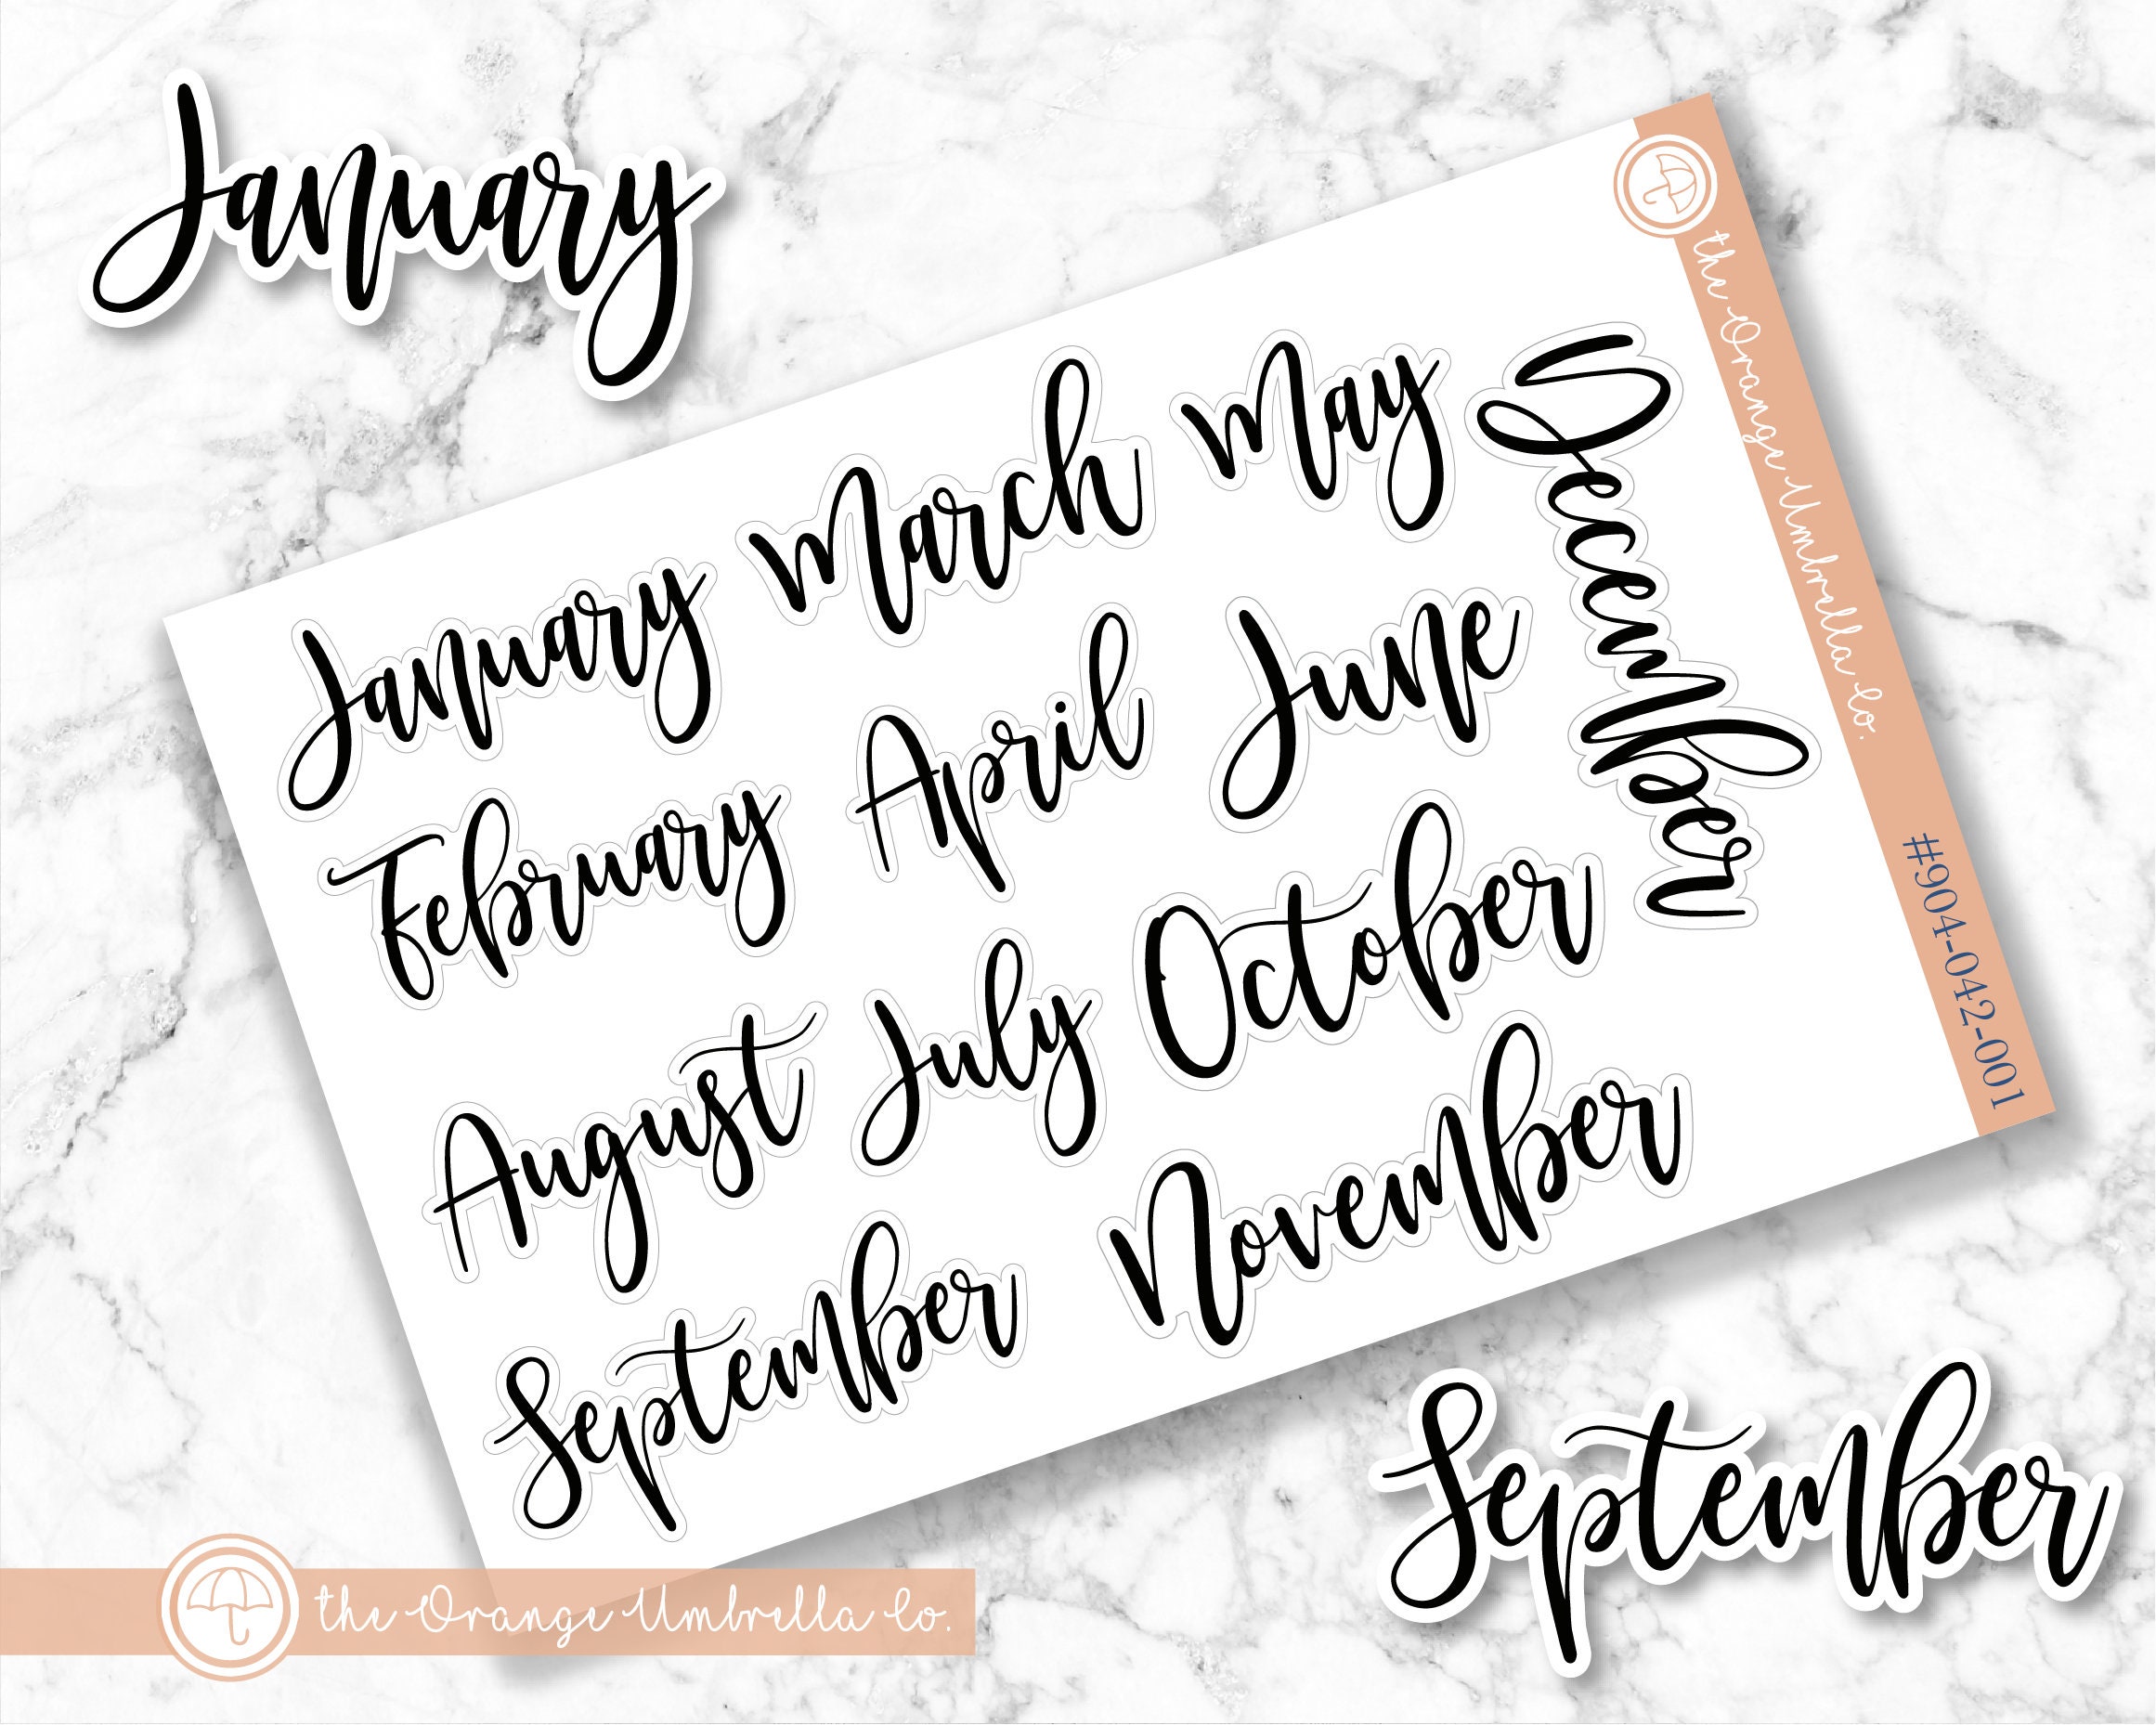 January
January
March
May
February
April
June
August
July
October
September
November
December
the Orange Umbrella Co.
#904-042-001
September
the Orange Umbrella Co.